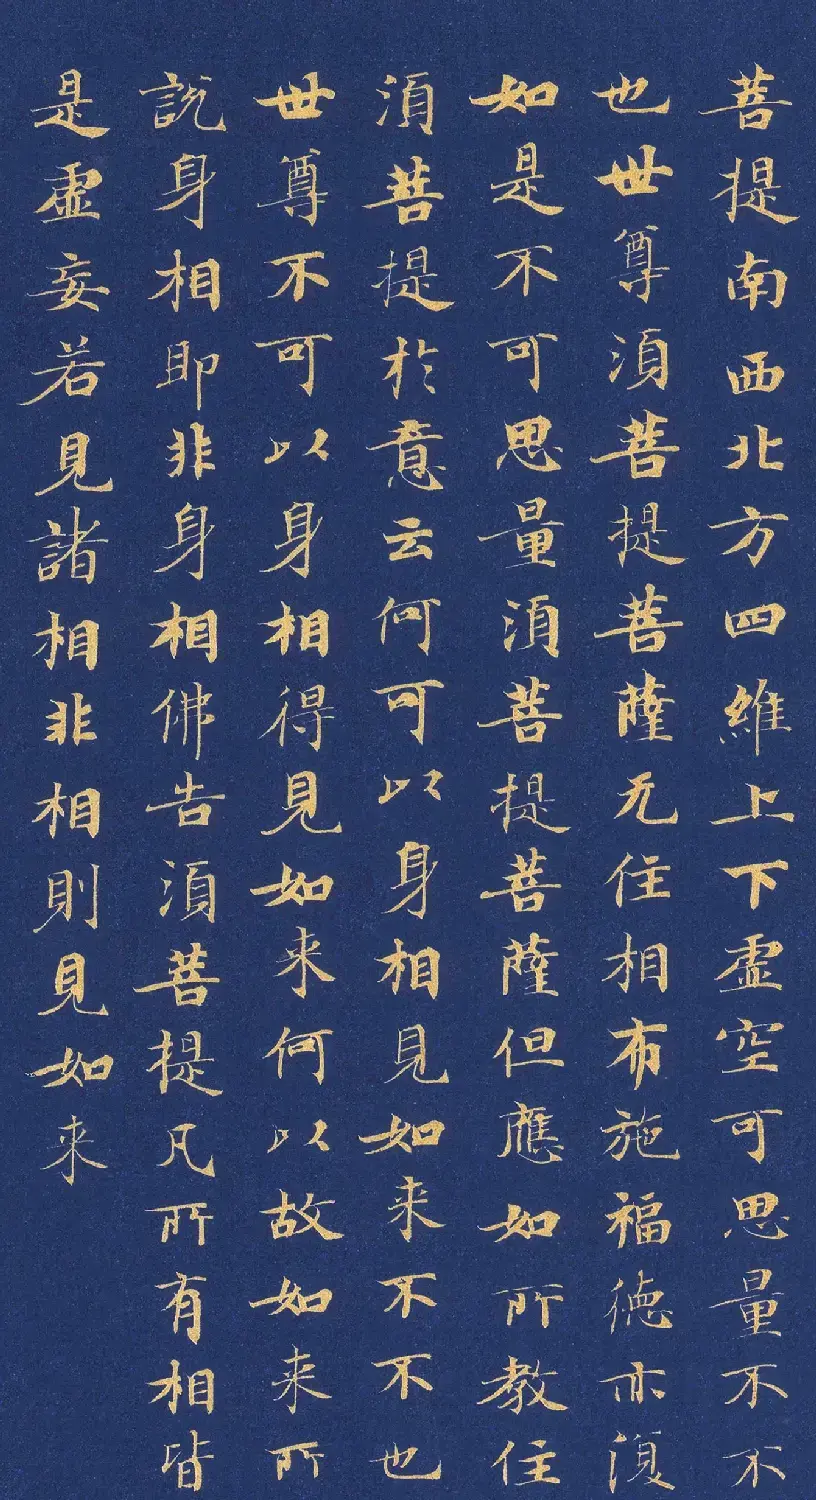 菩提南西北方四維上下虛空可思量不不
也世尊須菩提菩薩无住相布施福徳亦復
如是不可思量須菩提菩薩但應如所教住
須菩提於意云何可以身相見如来不不也
世尊不可以身相得見如来何以故如来所
說身相即非身相佛告須菩提凡所有相皆
是虛妄若見諸相非相則見如来